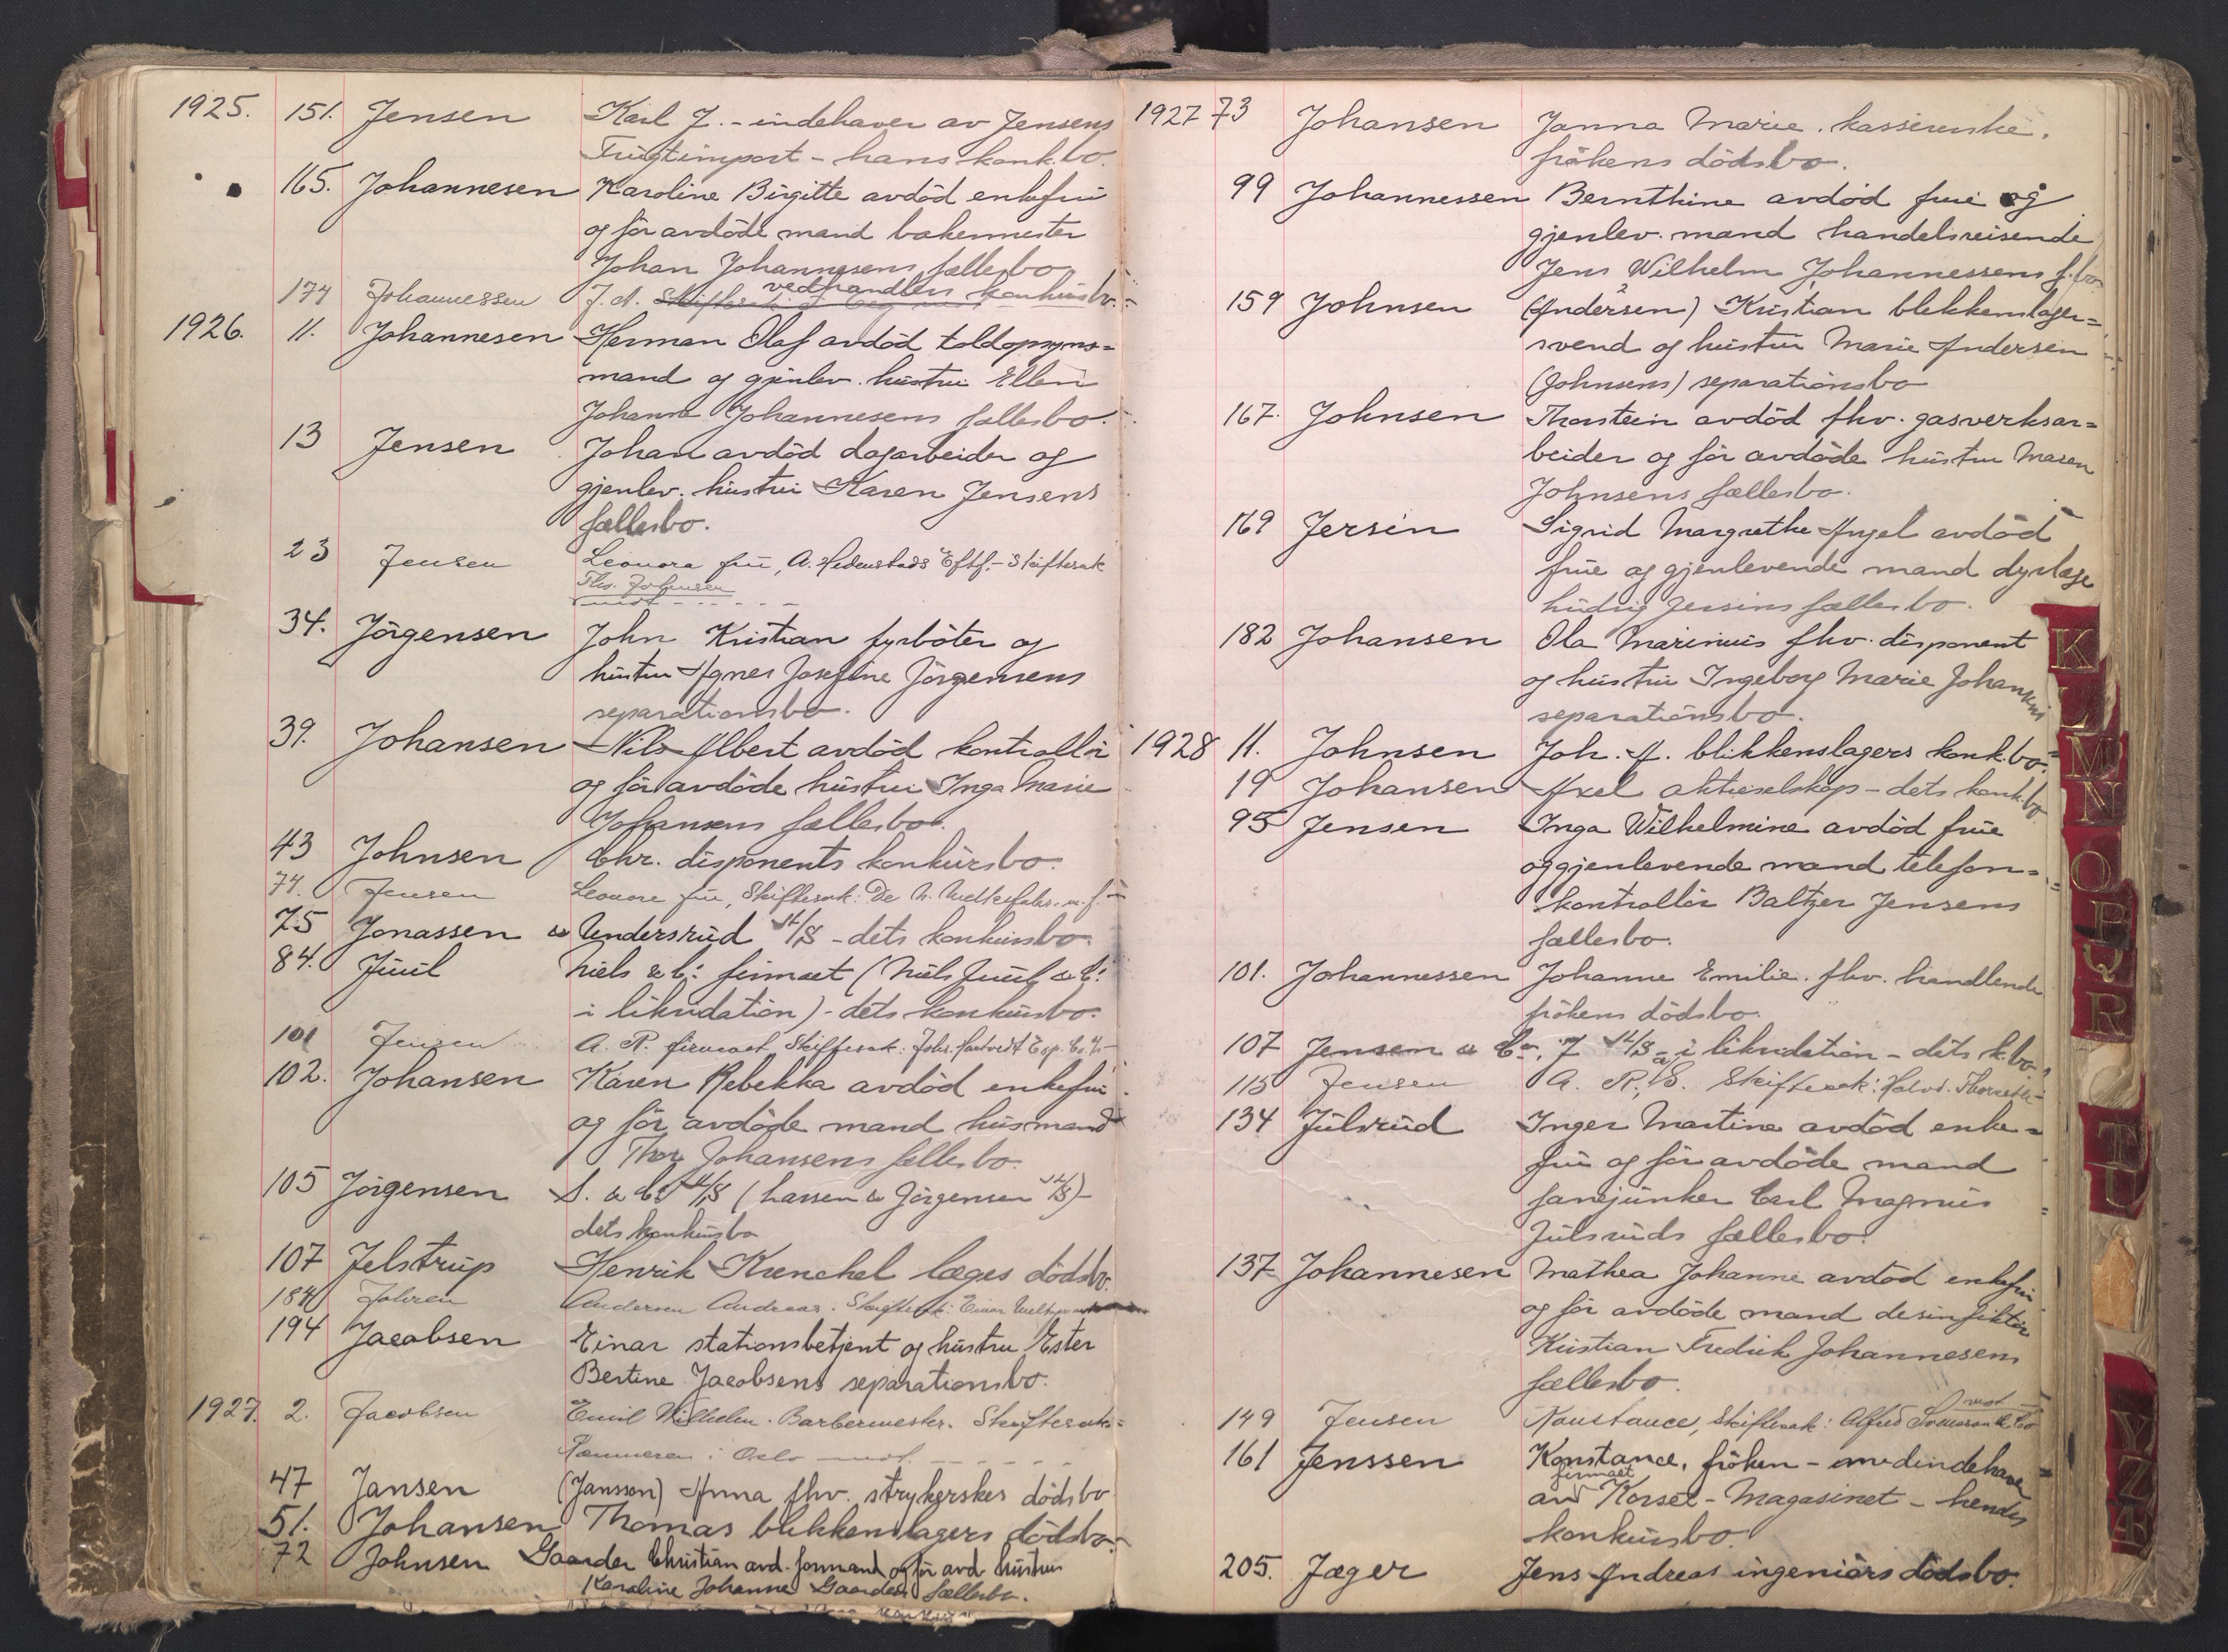 1925. 151. Jensen Karl J. - indehaver av Jensens
Frugtimport - hans konk.bo.
165. Johannesen Karoline Birgitte avdöd enkefru
og før avdöde mand bakermester
Johan Johannesens fællesbo
174 Johannessen J. A. vedhandlers konkursbo.
1926. 11. Johannesen Herman Olaf avdöd toldopsyns=
mand og gjenlev. hustru Ellen
Johanne Johannesens fællesbo.
13 Jensen Johan avdöd dagarbeider og
gjenlev. hustru Karen Jensens
fællesbo.
23 Jensen Leonora fru, A. Hedenstads Eftf. - Skiftesak
mot - - - - -
34. Jörgensen John Kristian fyrböter og
hustru Agnes Josefine Jörgensens
separationsbo.
39. Johansen Nils Albert avdöd kontrollör
og för avdöde hustru Inga Marie
Johansens fællesbo.
43 Johnsen Chr. disponents konkursbo.
74. Jensen Leonore fru, Skiftesak: De N.
75 Jonassen & Undersrud A/S - dets konkursbo.
84. Juul Niels & Co firmaet (Niels Juul & Co
i likvidation) - dets konkursbo.
101 Jensen A. R. firmaet Skiftesak: Johs.
102. Johansen Karen Rebekka avdöd enkefru
og för avdöde mand husmand
Thor Johansens fællesbo.
105 Jörgensen S. & Co A/S (Larsen & Jörgensen A/S) -
dets konkursbo
107 Jelstrup Henrik Krenchel læges dödsbo.
184 Johren Andersen Andreas. Skiftesak: Einar
194 Jacobsen Einar stationsbetjent og hustru Ester
Bertine Jacobsens separationsbo.
1927. 2. Jacobsen Emil Wilhelm. Barbermester. Skiftesak:
Kemneren i Oslo mot. - - - - -
47 Jansen (Jansson) Anna fhv. strykerskes dödsbo
51. Johansen Thomas blikkenslagers dödsbo.
72 Johnsen Gaarder Christian avd. formand og för avd. hustru
Karoline Johanne Gaarders fællesbo.
1927 73 Johansen Janna Marie. kassererske.
frökens dödsbo.
99 Johannessen Bernthine avdöd frue og
gjenlev. mand handelsreisende
Jens Wilhelm Johannessens f.bo
159 Johnsen (Andersen) Kristian blikkenslager=
svend og hustru Marie Andersen
(Johnsens) separationsbo
167. Johnsen Thorstein avdöd fhv. gasverksar=
beider og för avdöde hustru Maren
Johnsens fællesbo.
169 Jersin Sigrid Margrethe Angel avdöd
frue og gjenlevende mand dyrlæge
Ludvig Jersins fællesbo.
182 Johansen Ola Marinius fhv. disponent
og hustru Ingeborg Marie Johansens
separationsbo.
1928 11. Johnsen Joh. A. blikkenslagers konk.bo.
19 Johansen Axel aktieselskap - dets konk.bo
95 Jensen Inga Wilhelmine avdöd frue
og gjenlevende mand telefon=
kontrollör Baltzer Jensens
fællesbo.
101. Johannessen Johanne Emilie. fhv. handlende
frökens dödsbo.
107 Jensen & Co, J A/S i likvidation - dets k.bo.
115 Jensen A. R. Skiftesak: Halvd.
134 Julsrud Inger Martine avdöd enke=
fru og för avdöde mand
fanejunker Carl Magnus
Julsruds fællesbo.
137 Johannesen Mathea Johanne avdöd enkefru
og för avdöde mand desinfektör
Kristian Fredrik Johannesens
fællesbo.
149 Jensen Konstance, Skiftesak: Alfred & Co mot
161 Jenssen Konstance, fröken - medindehaver
av firmaet Korset-Magasinet - hendes
konkursbo.
205. Jæger Jens Andreas ingeniörs dödsbo.
K
L
M
N
O
P
Q
R
T
U
Y
Z
Æ